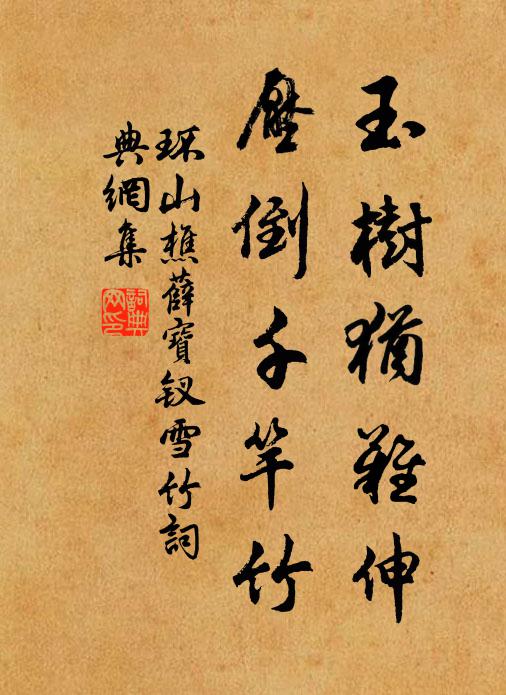 玉樹猶難伸
壓倒千竿竹
环山樵薛寶釵雪竹詞
典網集
詞典網印